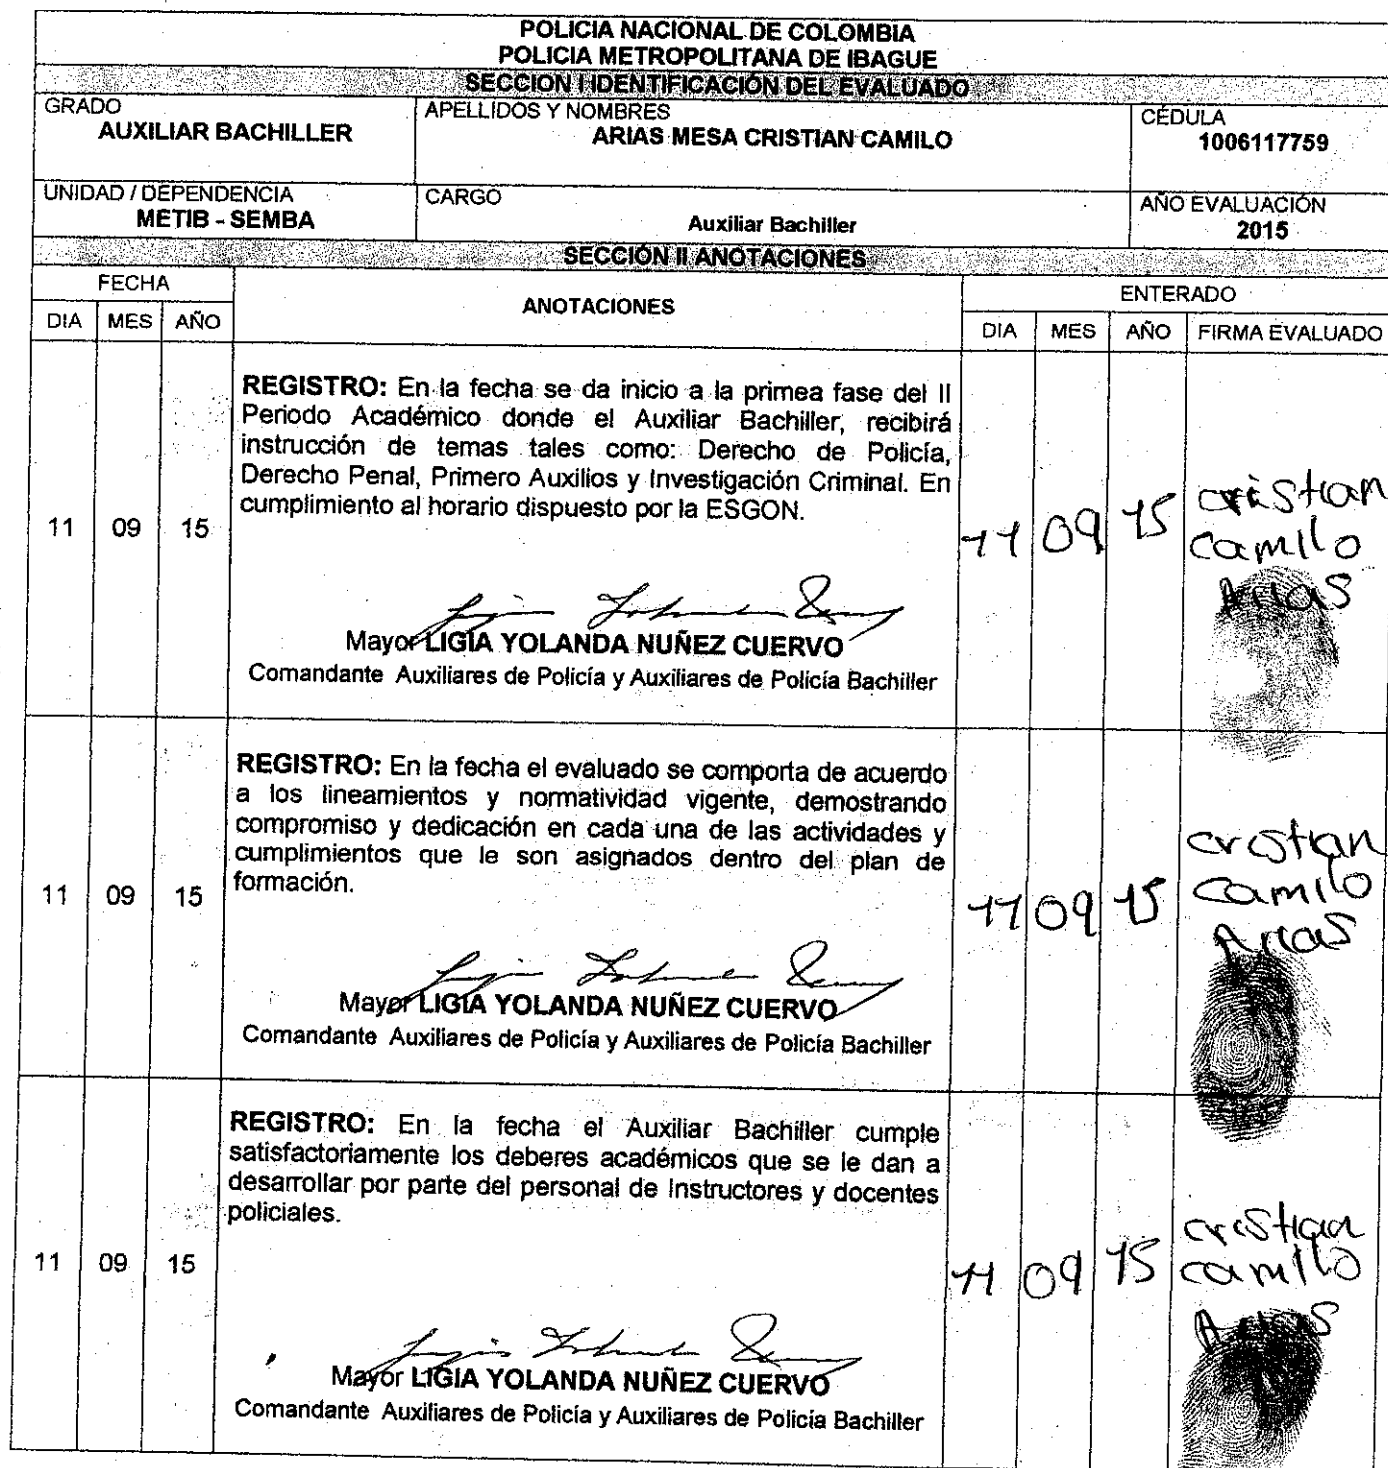 POLICIA NACIONAL DE COLOMBIA
POLICIA METROPOLITANA DE IBAGUE
SECCION I IDENTIFICACIÓN DEL EVALUADO
GRADO
AUXILIAR BACHILLER
APELLIDOS Y NOMBRES
ARIAS MESA CRISTIAN CAMILO
CÉDULA
1006117759
UNIDAD / DEPENDENCIA
METIB - SEMBA
CARGO
Auxiliar Bachiller
AÑO EVALUACIÓN
2015
SECCIÓN II ANOTACIONES
FECHA
ANOTACIONES
ENTERADO
DIA MES AÑO
DIA MES AÑO FIRMA EVALUADO
REGISTRO: En la fecha se da inicio a la primea fase del II
Periodo Académico donde el Auxiliar Bachiller, recibirá
instrucción de temas tales como: Derecho de Policía,
Derecho Penal, Primero Auxilios y Investigación Criminal. En
cumplimiento al horario dispuesto por la ESGON.
11 09 15
11 09 15
cristian
camilo
Arias
Mayor LIGIA YOLANDA NUÑEZ CUERVO
Comandante Auxiliares de Policía y Auxiliares de Policía Bachiller
REGISTRO: En la fecha el evaluado se comporta de acuerdo
a los lineamientos y normatividad vigente, demostrando
compromiso y dedicación en cada una de las actividades y
cumplimientos que le son asignados dentro del plan de
formación.
11 09 15
11 09 15
cristian
camilo
Arias
Mayor LIGIA YOLANDA NUÑEZ CUERVO
Comandante Auxiliares de Policía y Auxiliares de Policía Bachiller
REGISTRO: En la fecha el Auxiliar Bachiller cumple
satisfactoriamente los deberes académicos que se le dan a
desarrollar por parte del personal de Instructores y docentes
policiales.
11 09 15
11 09 15
cristian
camilo
Arias
Mayor LIGIA YOLANDA NUÑEZ CUERVO
Comandante Auxiliares de Policía y Auxiliares de Policía Bachiller